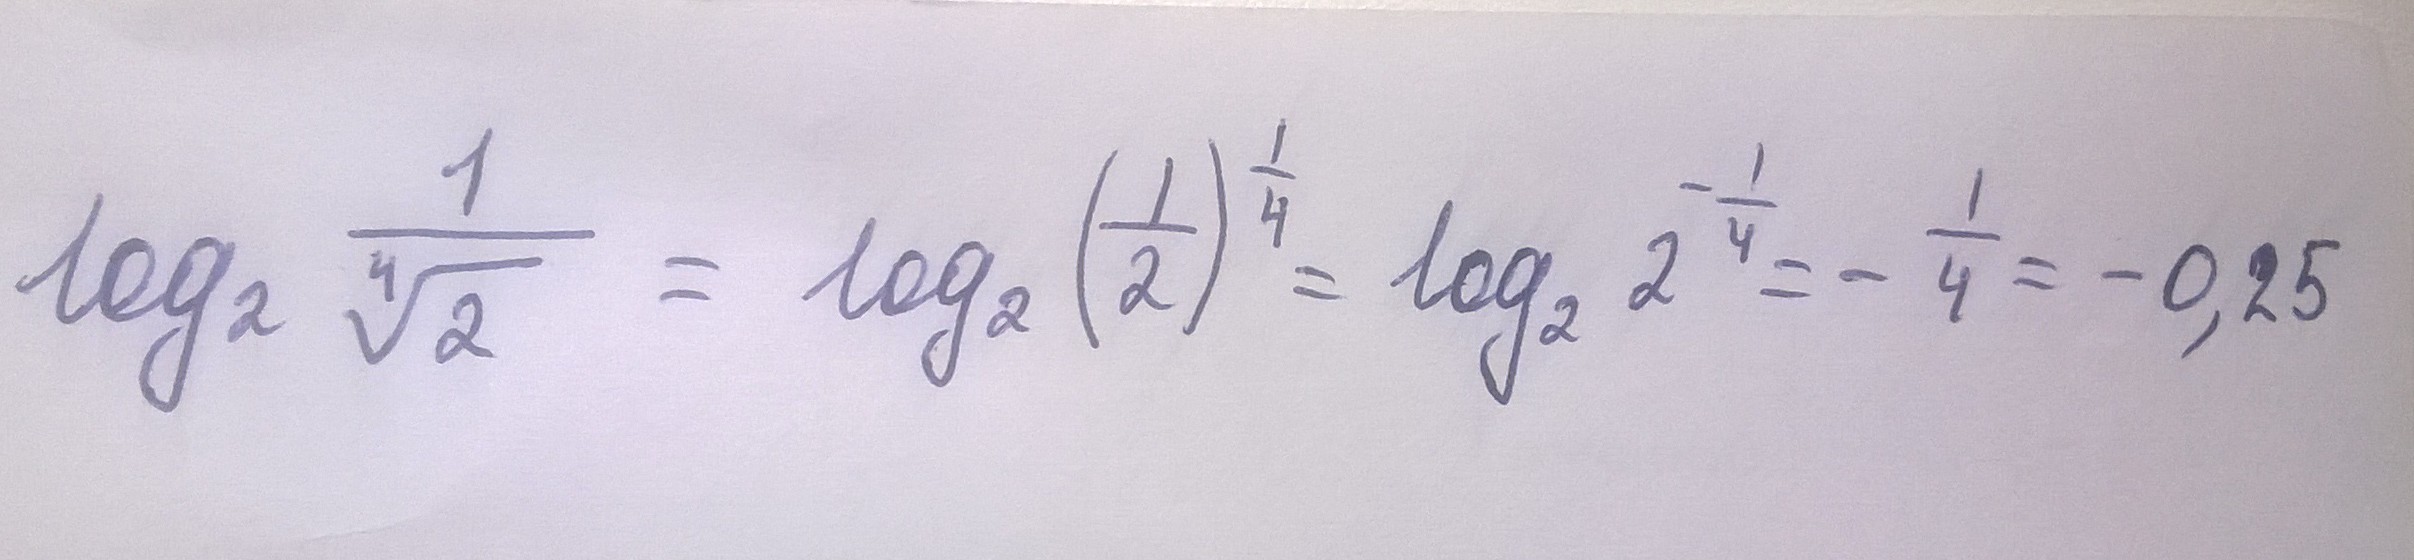 log₂ 1/⁴√2 = log₂ (1/2)^(1/4) = log₂ 2^(-1/4) = - 1/4 = -0,25